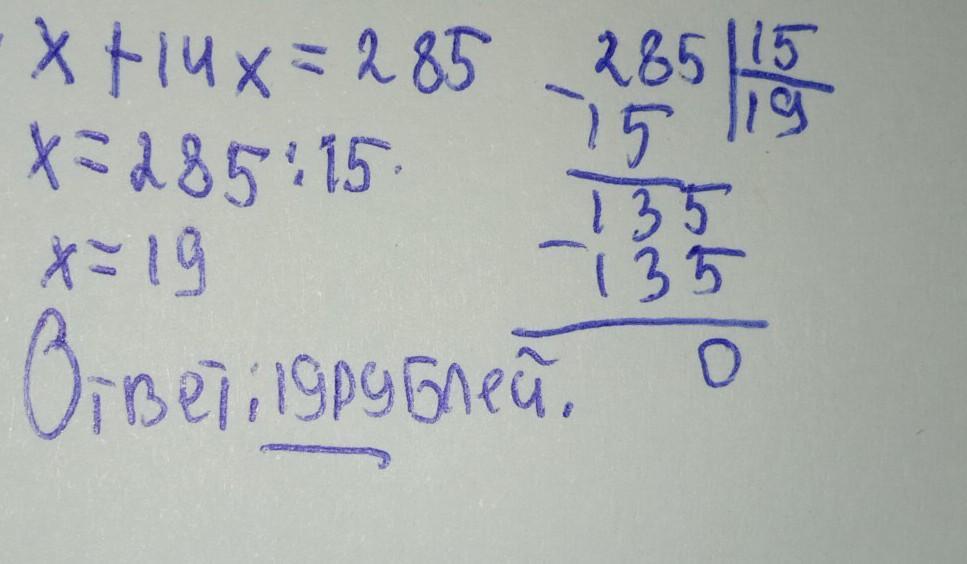 x + 14x = 285
x = 285 : 15.
x = 19
Ответ: 19 рублей.
- 285 | 15
15 | 19
135
- 135
0